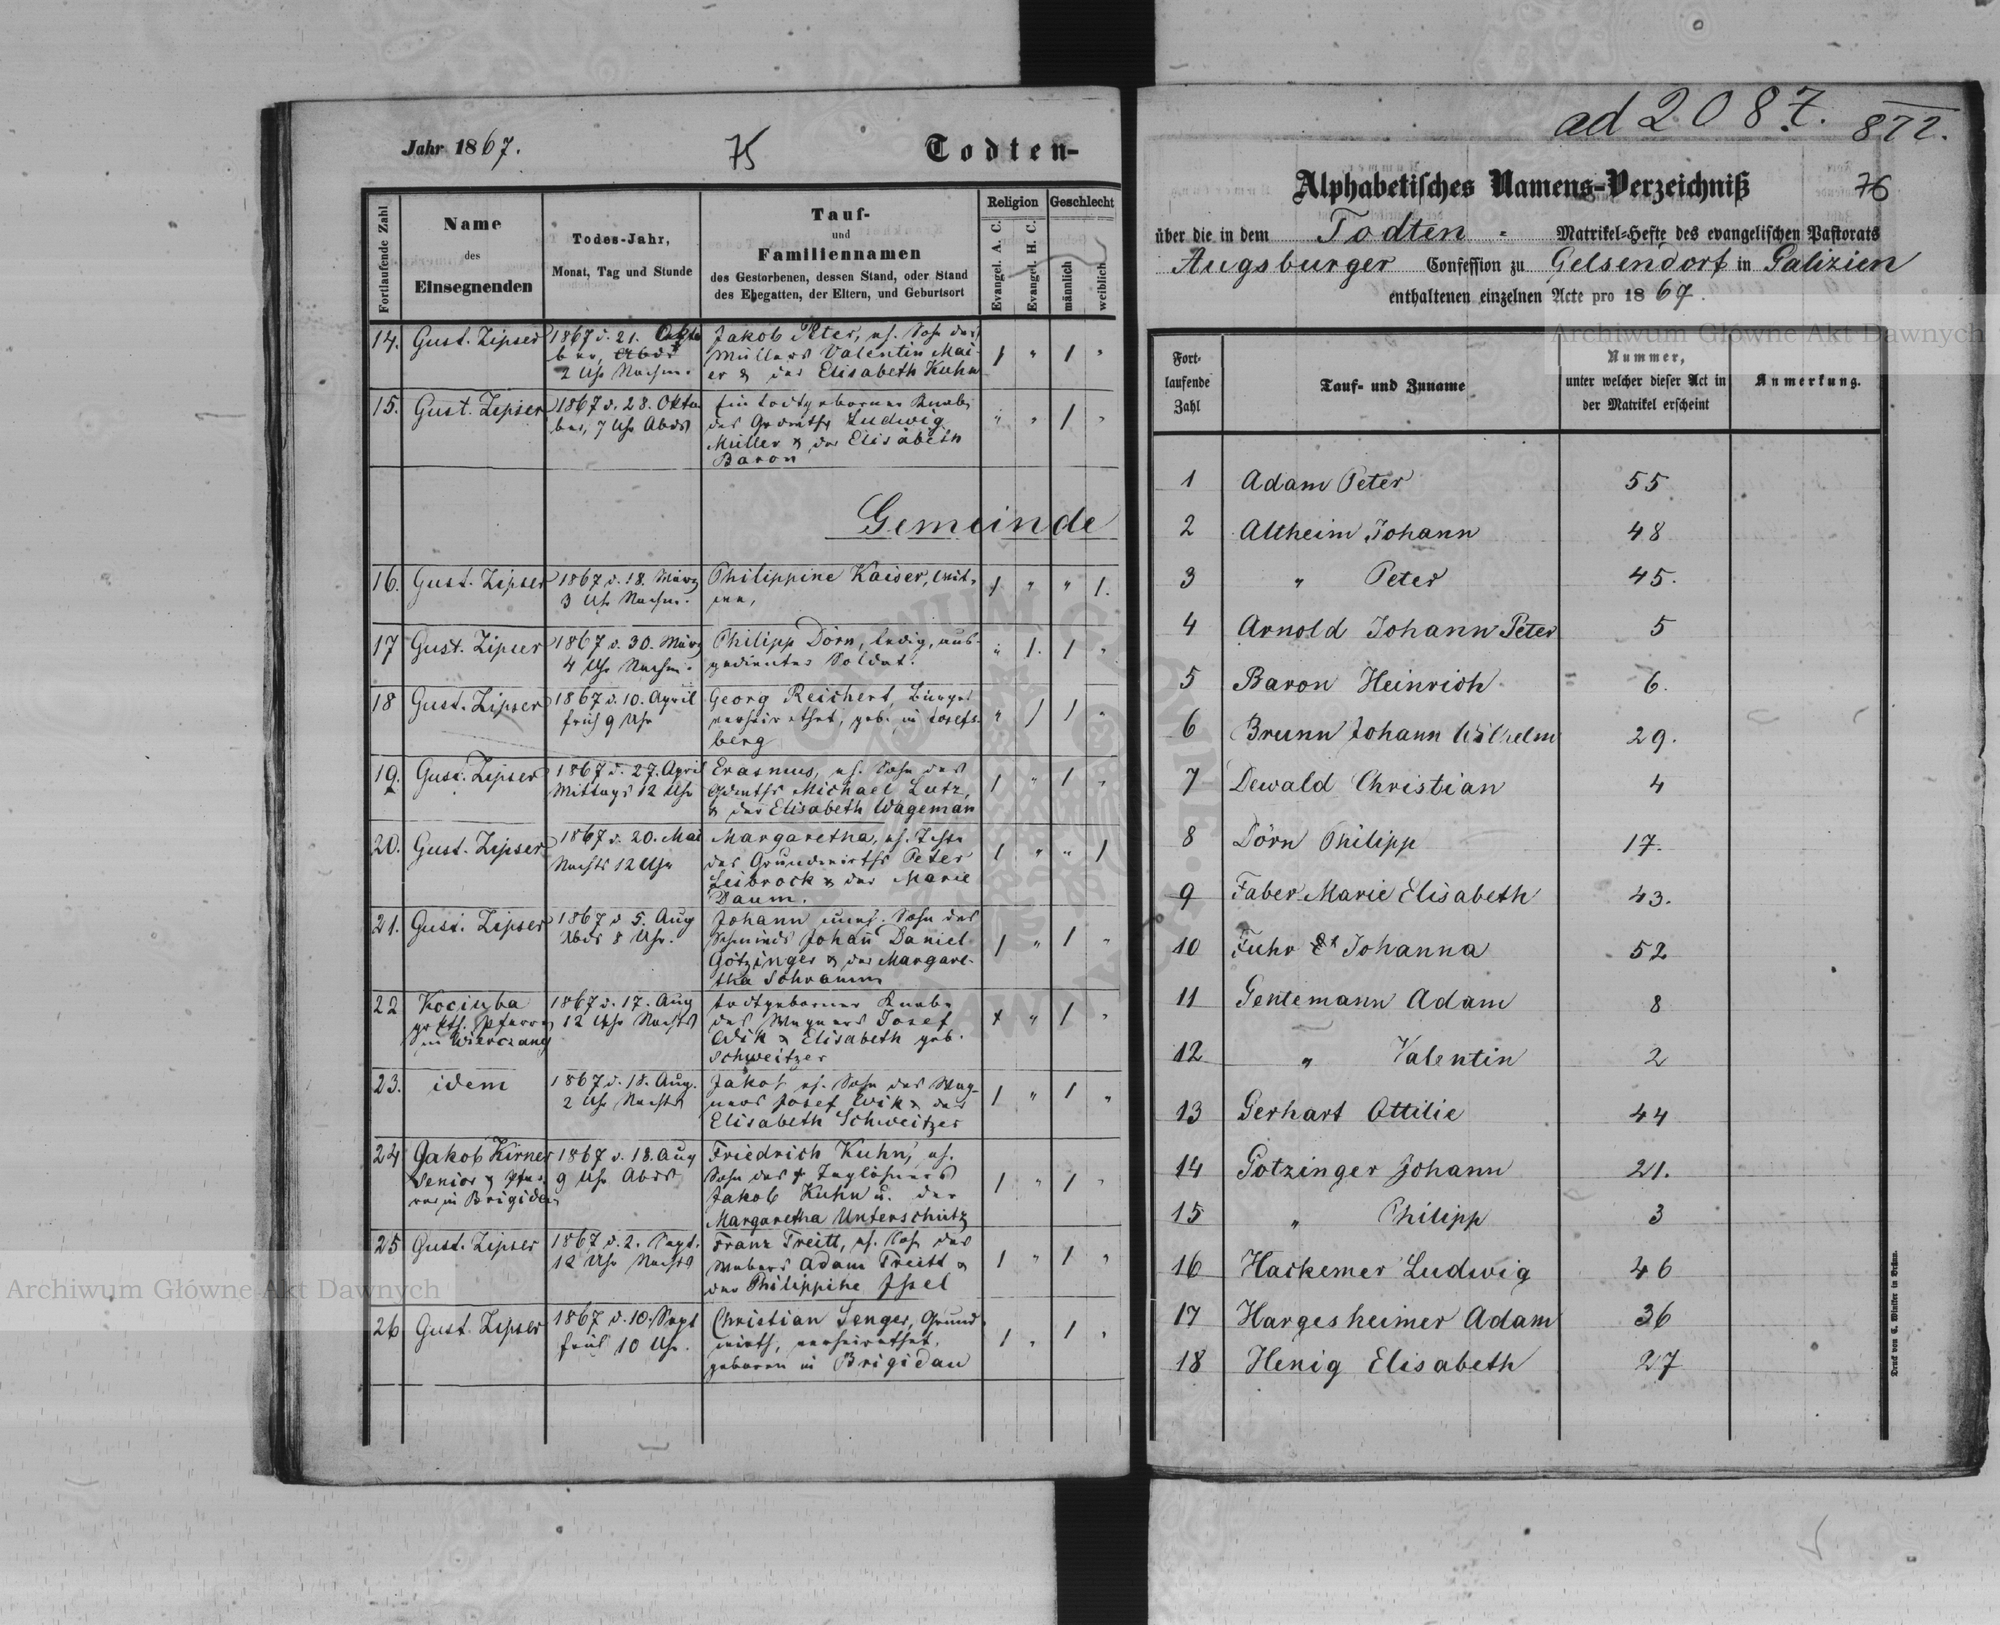 Jahr 1867.
75
Todten-
Fortlaufende Zahl
Name
des
Einsegnenden
Todes-Jahr,
Monat, Tag und Stunde
Tauf-
und
Familiennamen
des Gestorbenen, dessen Stand, oder Stand
des Ehegatten, der Eltern, und Geburtsort
Religion
Geschlecht
Evangel. A. C.
Evangel. H. C.
männlich
weiblich
14. Gust. Zipser 1867 d. 21. Okto Jakob Peter, eh. Sohn des
ber, Abds Müllers Valentin Mai- 1 " 1 "
2 Uhr Nachm. er & der Elisabeth Kuhn
15. Gust. Zipser 1867 d. 28. Okto Ein todtgeborner Knabe
ber, 7 Uhr Abds des Grdwths Ludwig " " 1 "
Müller & der Elisabeth
Baron
Gemeinde
16. Gust. Zipser 1867 d. 18. März Philippine Kaiser, Wit- 1 " " 1.
3 Uhr Nachm. we,
17 Gust. Zipser 1867 d. 30. März Philipp Dörn, ledig, aus- " 1. 1 "
4 Uhr Nachm. gedienter Soldat.
18 Gust. Zipser 1867 d. 10. April Georg Reichert, Bürger
früh 9 Uhr verheirathet, geb. in Josefs- " 1 1 "
berg
19. Gust. Zipser 1867 d. 27. April Erasmus, eh. Sohn des
Mittags 12 Uhr Grdwths Michael Lutz, 1 " 1 "
& der Elisabeth Wageman
20. Gust. Zipser 1867 d. 20. Mai Margaretha, eh. Tochter
Nachts 12 Uhr des Grundwirths Peter 1 " " 1
Leibrock & der Marie
Daum.
21. Gust. Zipser 1867 d 5. Aug Johann uneh. Sohn des
Abds 8 Uhr. Schmieds Johan̄ Daniel 1 " 1 "
Götzinger & der Margare-
tha Schramm
22 Kociuba 1867 d. 17. Aug todtgeborner Knabe
gr. kth. Pfarrer 12 Uhr Nachts des Wagners Josef 1 " 1 "
in Wierczany Wik & Elisabeth geb.
Schweitzer
23. idem 1867 d. 18. Aug. Jakob eh. Sohn des Wag-
2 Uhr Nachts ners Josef Wik & der 1 " 1 "
Elisabeth Schweitzer
24 Jakob Kirner 1867 d. 18. Aug Friedrich Kuhn, eh.
Senior & Pfar- 9 Uhr Abds Sohn des † Taglöhners
rer in Brigidau Jakob Kuhn u. der 1 " 1 "
Margaretha Unterschütz
25 Gust. Zipser 1867 d. 2. Sept. Franz Treitt, eh. Sohn des
12 Uhr Nachts Webers Adam Treitt & 1 " 1 "
der Philippine Issel
26 Gust. Zipser 1867 d. 10. Sept Christian Senger, Grund-
früh 10 Uhr. wirth, verheirathet, 1 " 1 "
geboren in Brigidau
ad 2087. 872.
Alphabetisches Namens-Verzeichniß
76
über die in dem Todten - Matrikel-Hefte des evangelischen Pastorats
Augsburger Confession zu Gelsendorf in Galizien
enthaltenen einzelnen Acte pro 1867.
Fort-
laufende
Zahl
Tauf- und Zuname
Nummer,
unter welcher dieser Act in
der Matrikel erscheint
Anmerkung.
1 Adam Peter 55.
2 Altheim Johann 48
3 " Peter 45.
4 Arnold Johann Peter 5
5 Baron Heinrich 6.
6 Brunn Johann Wilhelm 29.
7 Dewald Christian 4
8 Dörn Philipp 17.
9 Faber Marie Elisabeth 43.
10 Fuhr Johanna 52
11 Gentemann Adam 8
12 " Valentin 2
13 Gerhart Ottilie 44
14 Götzinger Johann 21.
15 " Philipp 3
16 Hackemer Ludwig 46
17 Hargesheimer Adam 36
18 Henig Elisabeth 27
Druck von C. Winiker in Brünn.
Archiwum Główne Akt Dawnych
Archiwum Główne Akt Dawnych